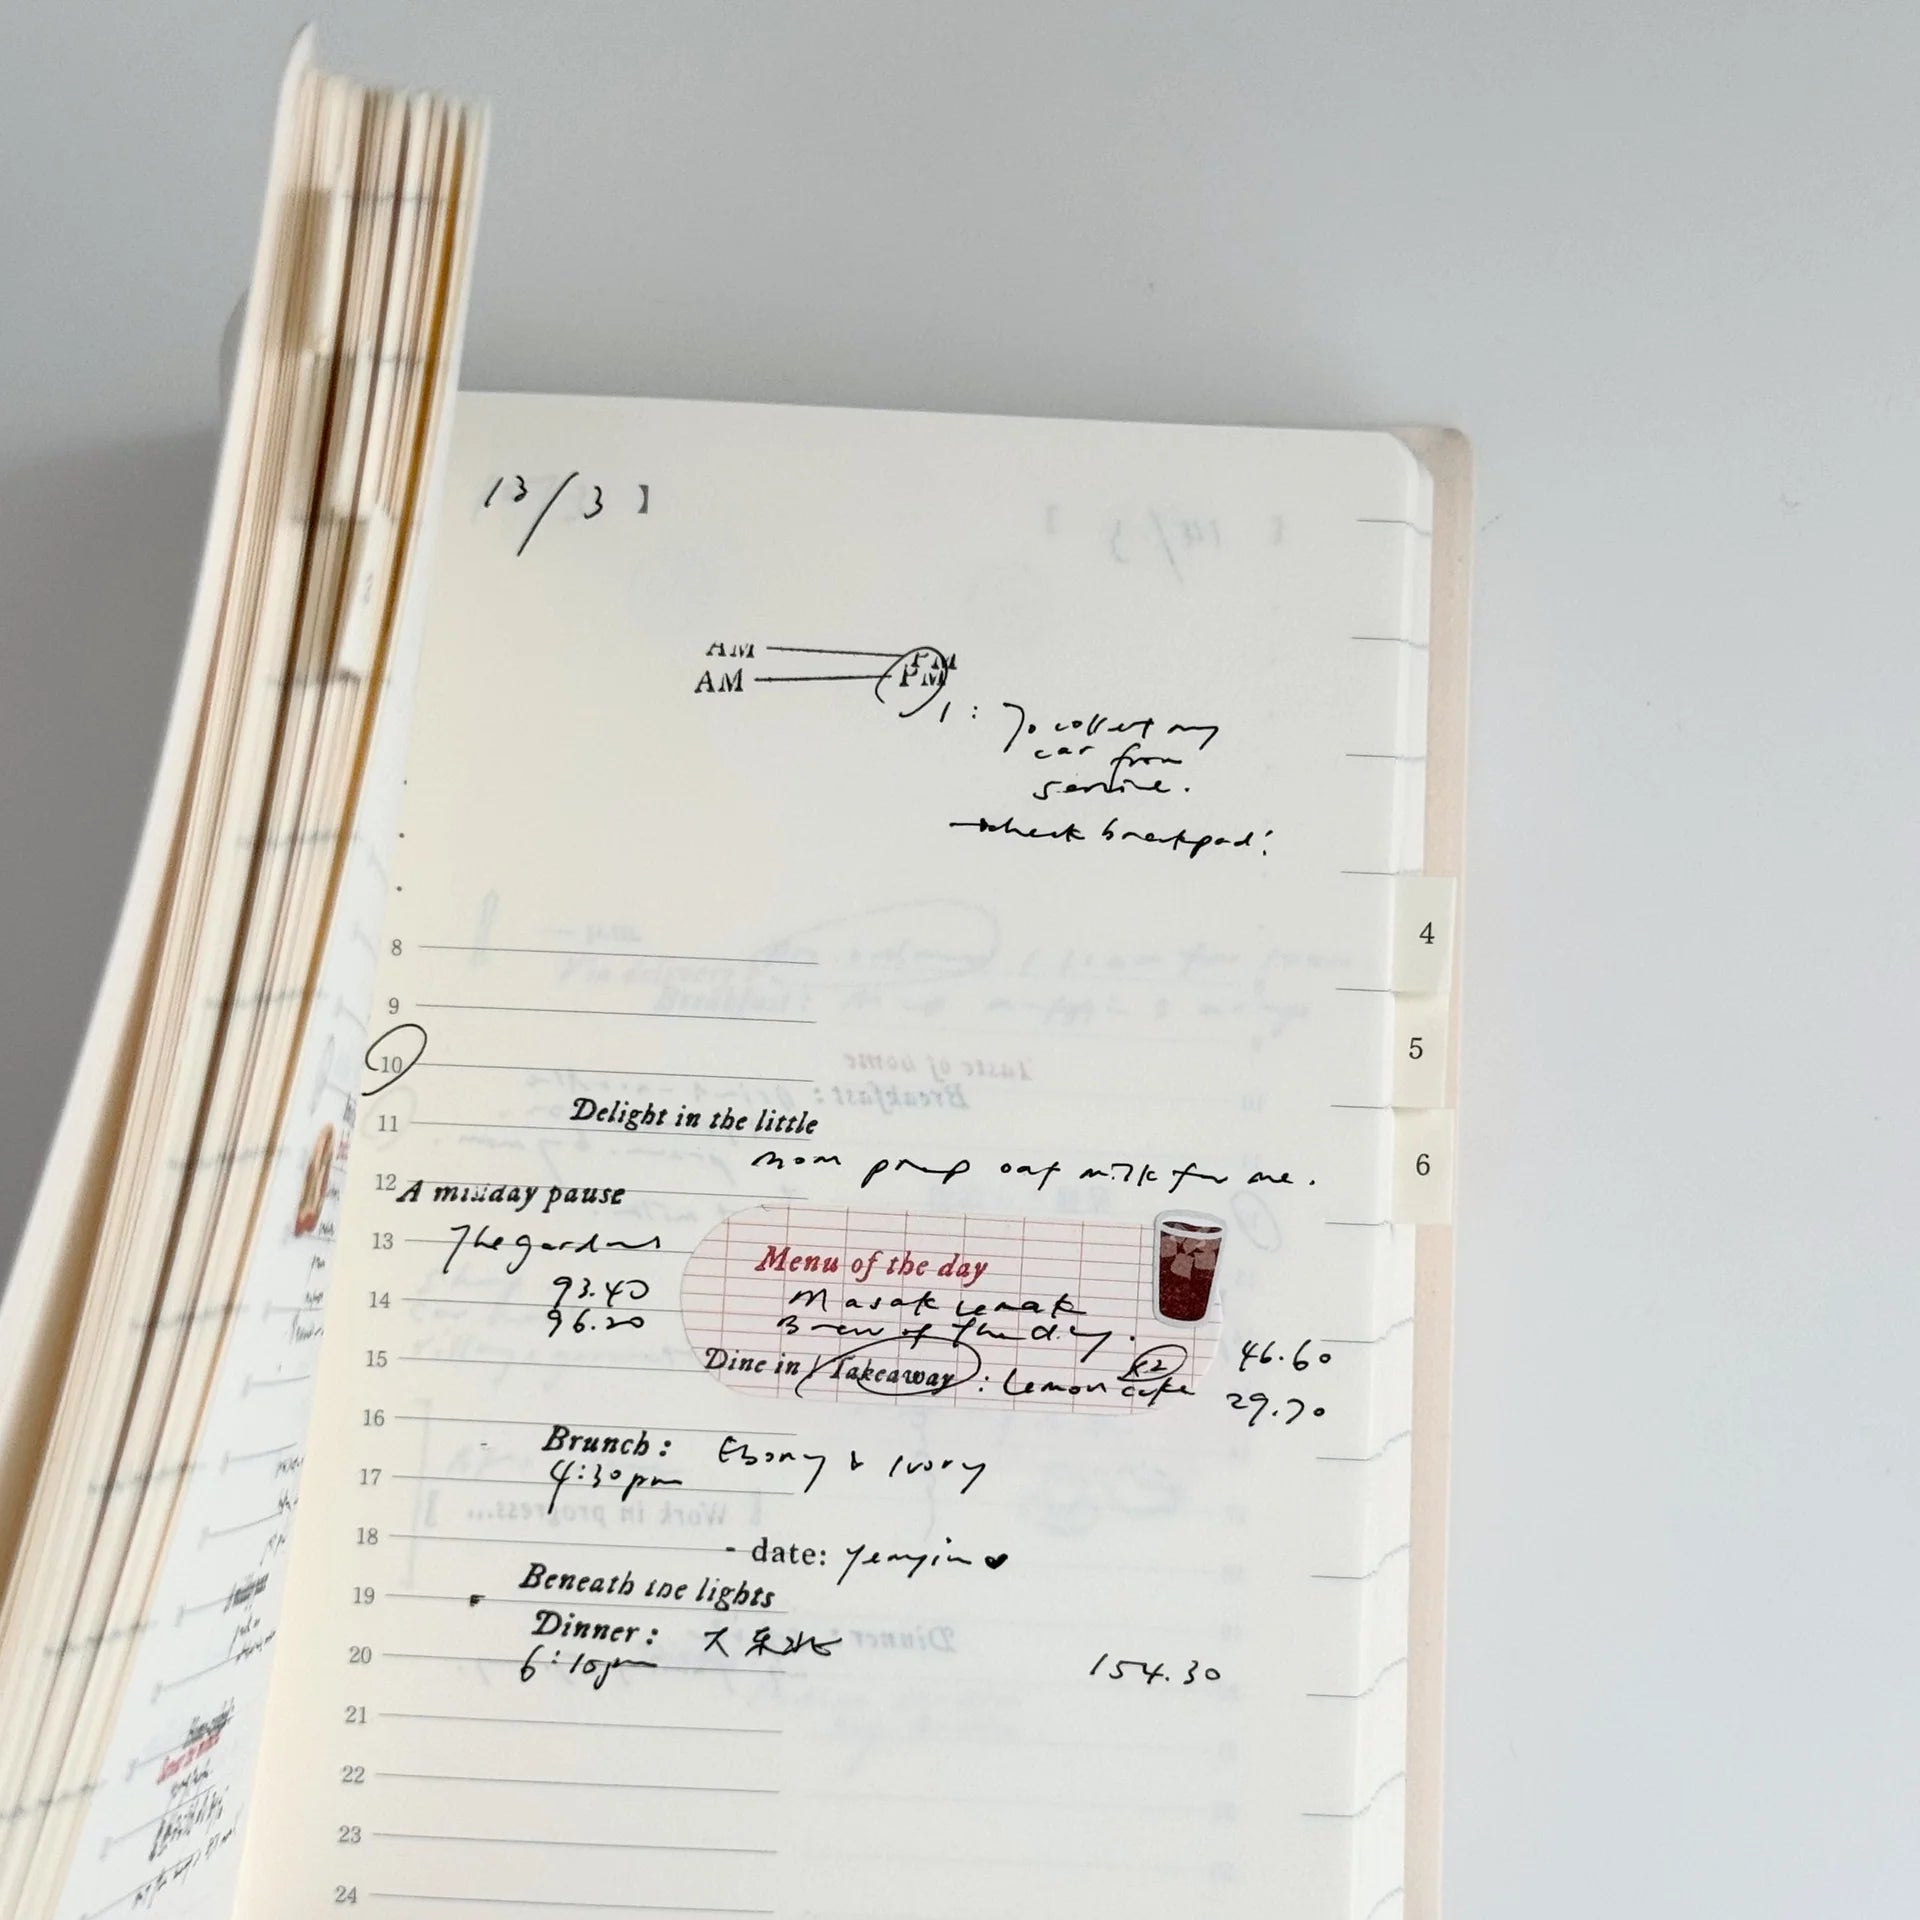 13/3 】
AM — PM
AM — PM
1: To collect my
car from
service.
→ check breakpad!
4
8
9
5
10
Delight in the little
11
mom pump oat milk for me.
6
12 A midday pause
13 The gardens
Menu of the day
93.40
14
Masak Lemak
96.20
Brew of the day.
46.60
15
Dine in / Takeaway : Lemon cake x2
29.70
16
Brunch: Ebony & Ivory
4:30pm
17
18
- date: Yenyin ♥
Beneath the lights
19
Dinner: 大东北
6:10pm
20
154.30
21
22
23
24